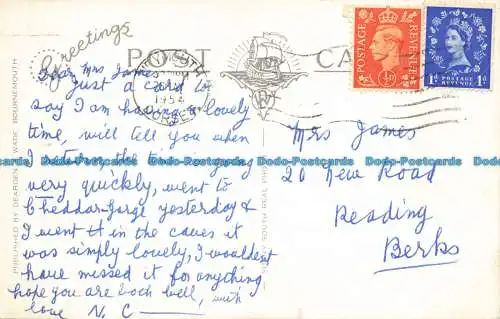 Greetings
POST CARD
PUBLISHED BY DEARDEN & WADE BOURNEMOUTH
1954
POSTAGE REVENUE
½D
POSTAGE REVENUE
1D 1D
Dear Mrs James
Just a card to
say I am having a lovely
time, will tell you when
I return, the time is going
very quickly, went to
Cheddar-Gorge yesterday &
I went in the caves it
was simply lovely, I wouldent
have missed it for anything
hope you are both well, with
love N. C
Mrs James
20 New Road
Reading
Berks
Dodo-Postcards Dodo-Postcards Dodo-Postcards Dodo-Postcards Dodo-Postcards